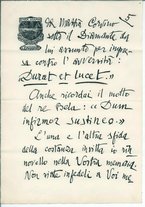 Di Mattia Corvino
sotto il Diamante da
lui assunto per impresa
contro l'avversità:
"Durat et lucet."
Anche ricordai il motto
del re Bela: "Dum
infirmor sustineo."
L'una e l'altra sfida
della costanza invitta
novello nella Vostra memoria
Non siate infedeli a Voi